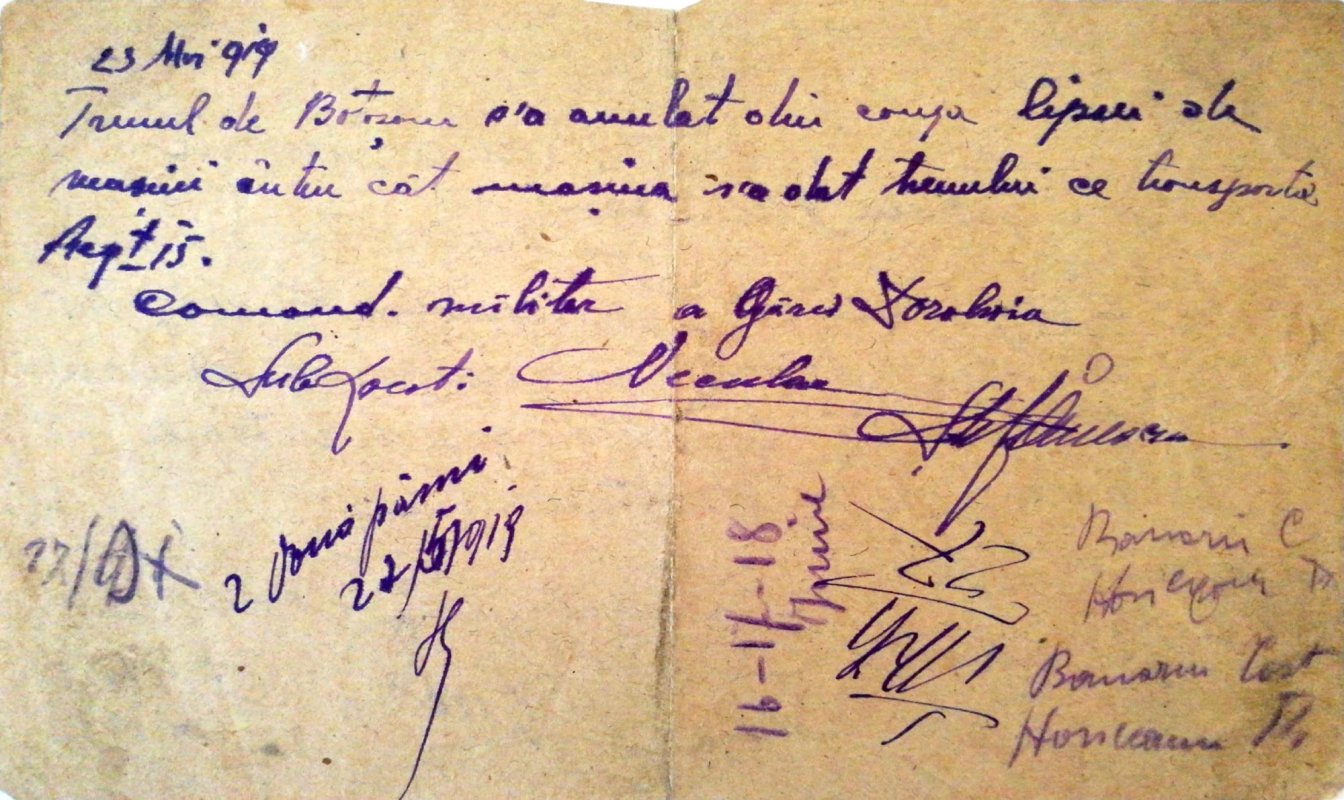 23 Mai 919
Trenul de Botoșani s'a anulat din cauza lipsei de
mașini întru cât mașina s'a dat trenului ce transportă
Reg^t 15.
Comand. militar a Gărei Dorohoia
Sub Locot: Neculai
Ștefănescu
2 două pâini
22/5/919
16-17-18
Aprilie
22
Banariu C
Banariu Cost
Horiceanu